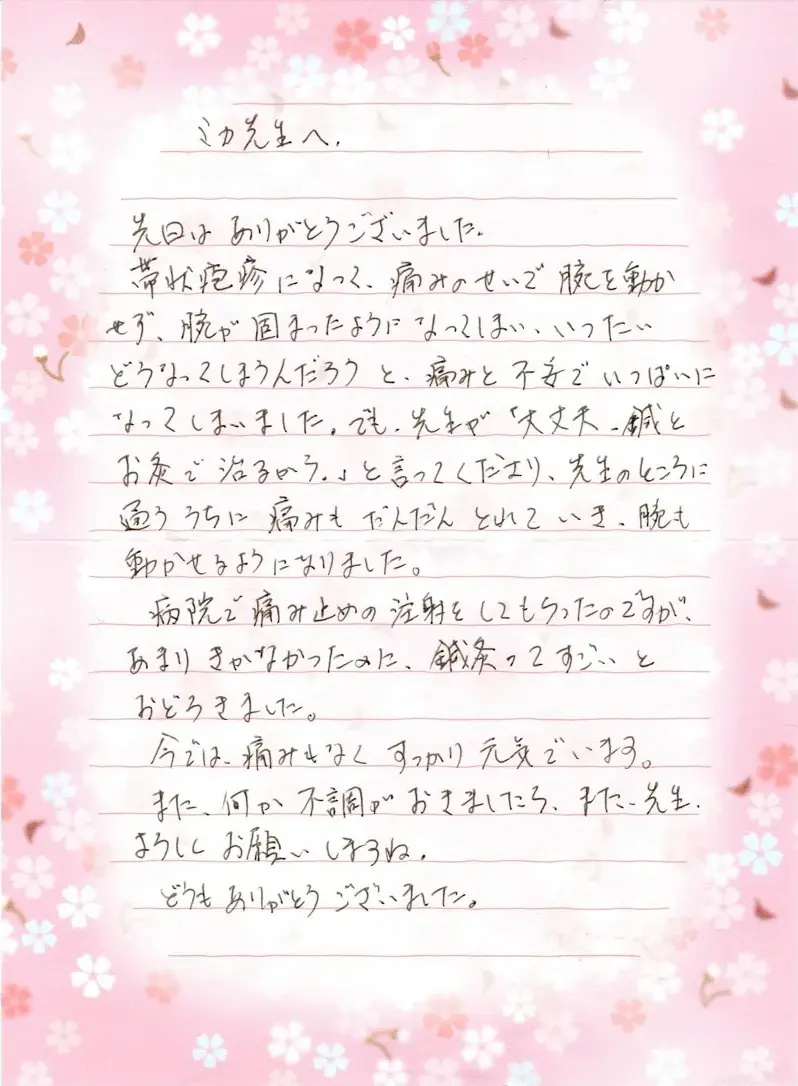 ミカ先生へ.
先日は ありがとうございました.
帯状疱疹になって、痛みのせいで 腕を動か
せず、腕が 固まったように なってしまい、いったい
どうなってしまうんだろう と、痛みと 不安で いっぱいに
なってしまいました。でも、先生が「大丈夫、鍼と
お灸で 治るから.」と言ってくださり、先生のところに
通ううちに 痛みも だんだん とれて いき、腕も
動かせるようになりました。
病院で痛み止めの 注射をしてもらったのですが、
あまり きかなかったのに、鍼灸ってすごいと
おどろきました。
今では、痛みもなく すっかり 元気でいます。
また、何か 不調が おきましたら、また、先生.
よろしく お願い しますね.
どうも ありがとう ございました。